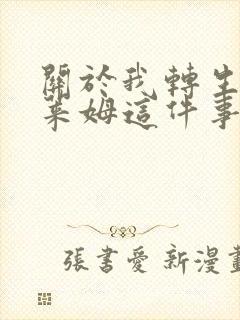 關於我轉生
萊姆這件事
張書愛 新漫畫